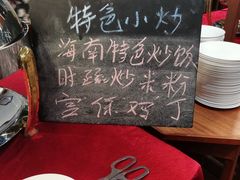 特色小炒
海南特色炒饭
时蔬炒米粉
宫保鸡丁